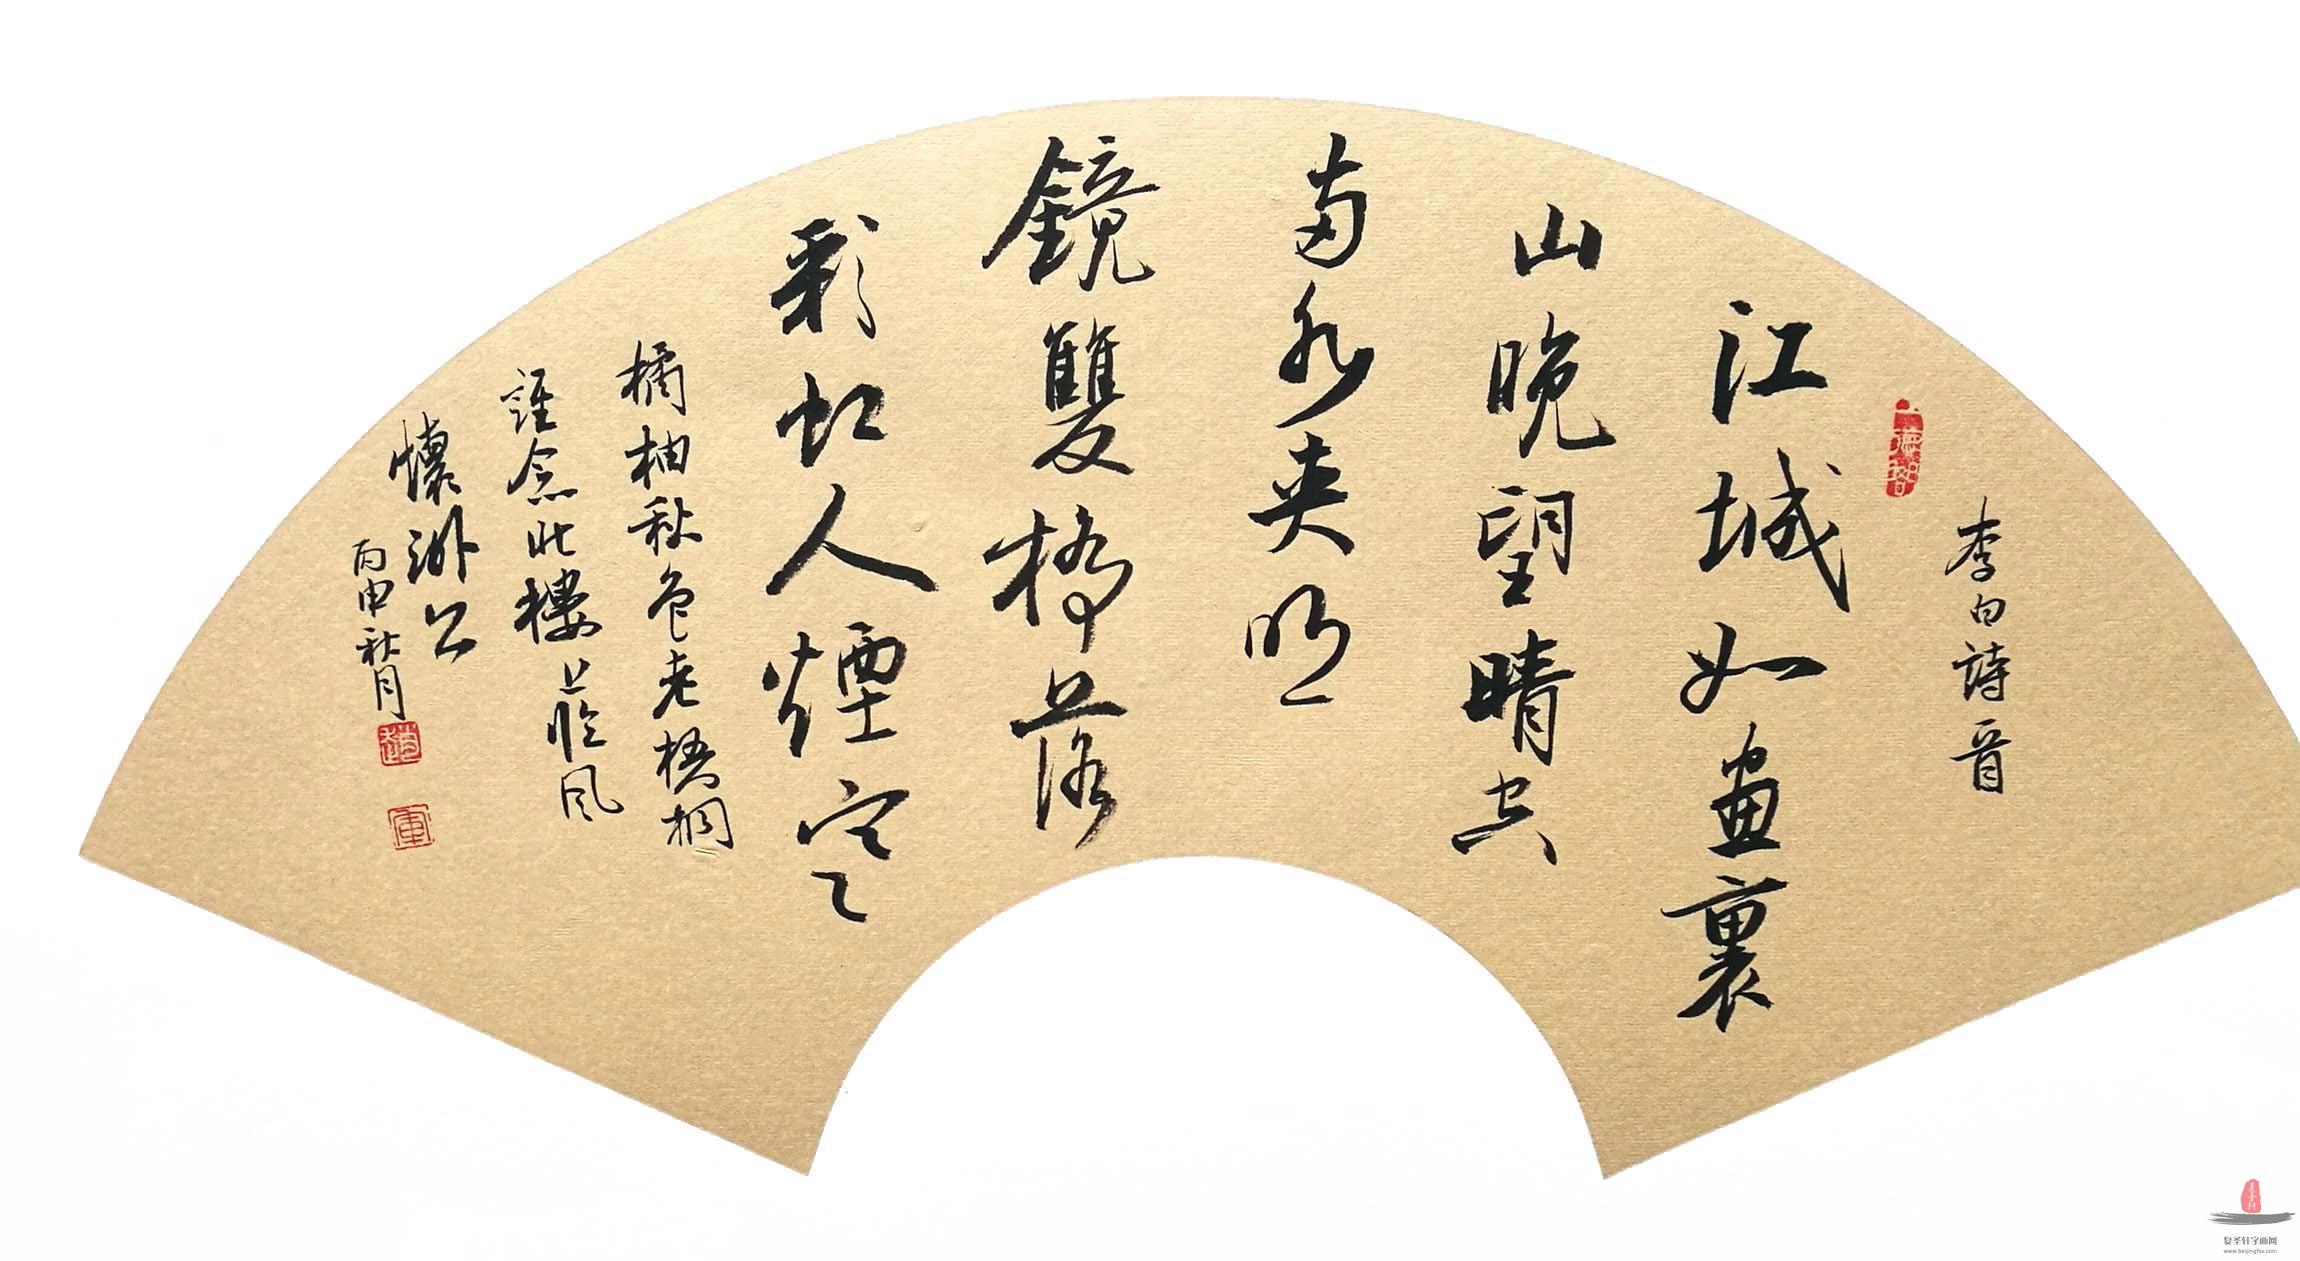 李白詩一首
江城如畫裏
山晚望晴空
兩水夾明
鏡雙橋落
彩虹人煙寒
橘柚秋色老梧桐
誰念北樓上臨風
懷謝公
丙申秋月
軍
复圣轩字画网
www.beijingfsx.com